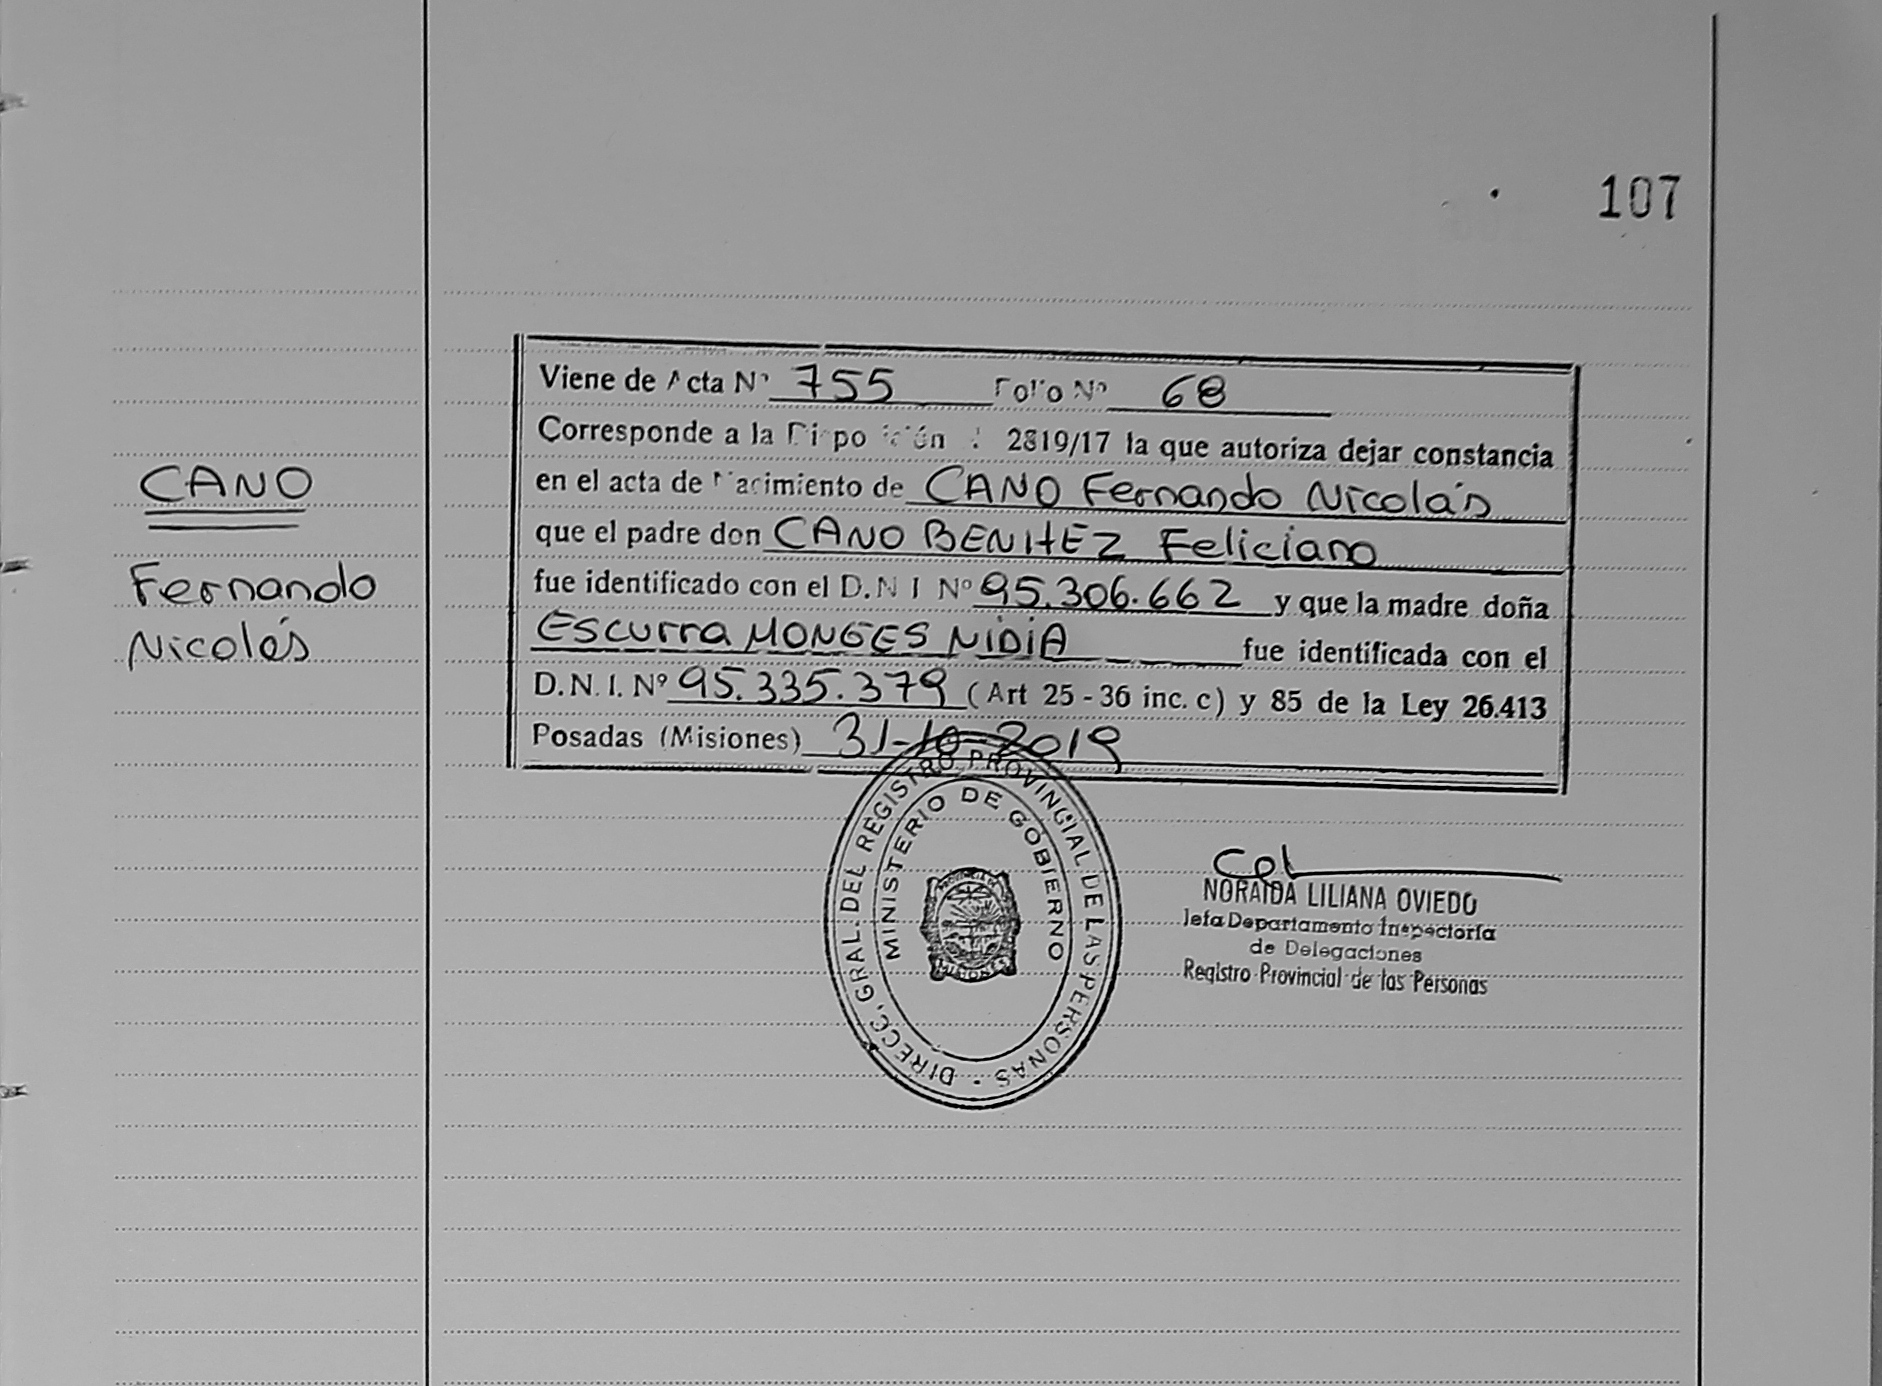 107
CANO
Fernando
Nicolás
Viene de Acta Nº 755 Folio Nº 68
Corresponde a la Disposición 2819/17 la que autoriza dejar constancia
en el acta de Nacimiento de CANO Fernando Nicolás
que el padre don CANO BENITEZ Feliciano
fue identificado con el D.N I Nº 95.306.662 y que la madre doña
Escurra MONGES NIDIA fue identificada con el
D.N.I. Nº 95.335.379 (Art 25 - 36 inc. c) y 85 de la Ley 26.413
Posadas (Misiones) 31-10-2019
DIRECC. GRAL. DEL REGISTRO PROVINCIAL DE LAS PERSONAS
MINISTERIO DE GOBIERNO
MISIONES
NORAIDA LILIANA OVIEDO
Jefa Departamento Inspectoría
de Delegaciones
Registro Provincial de las Personas